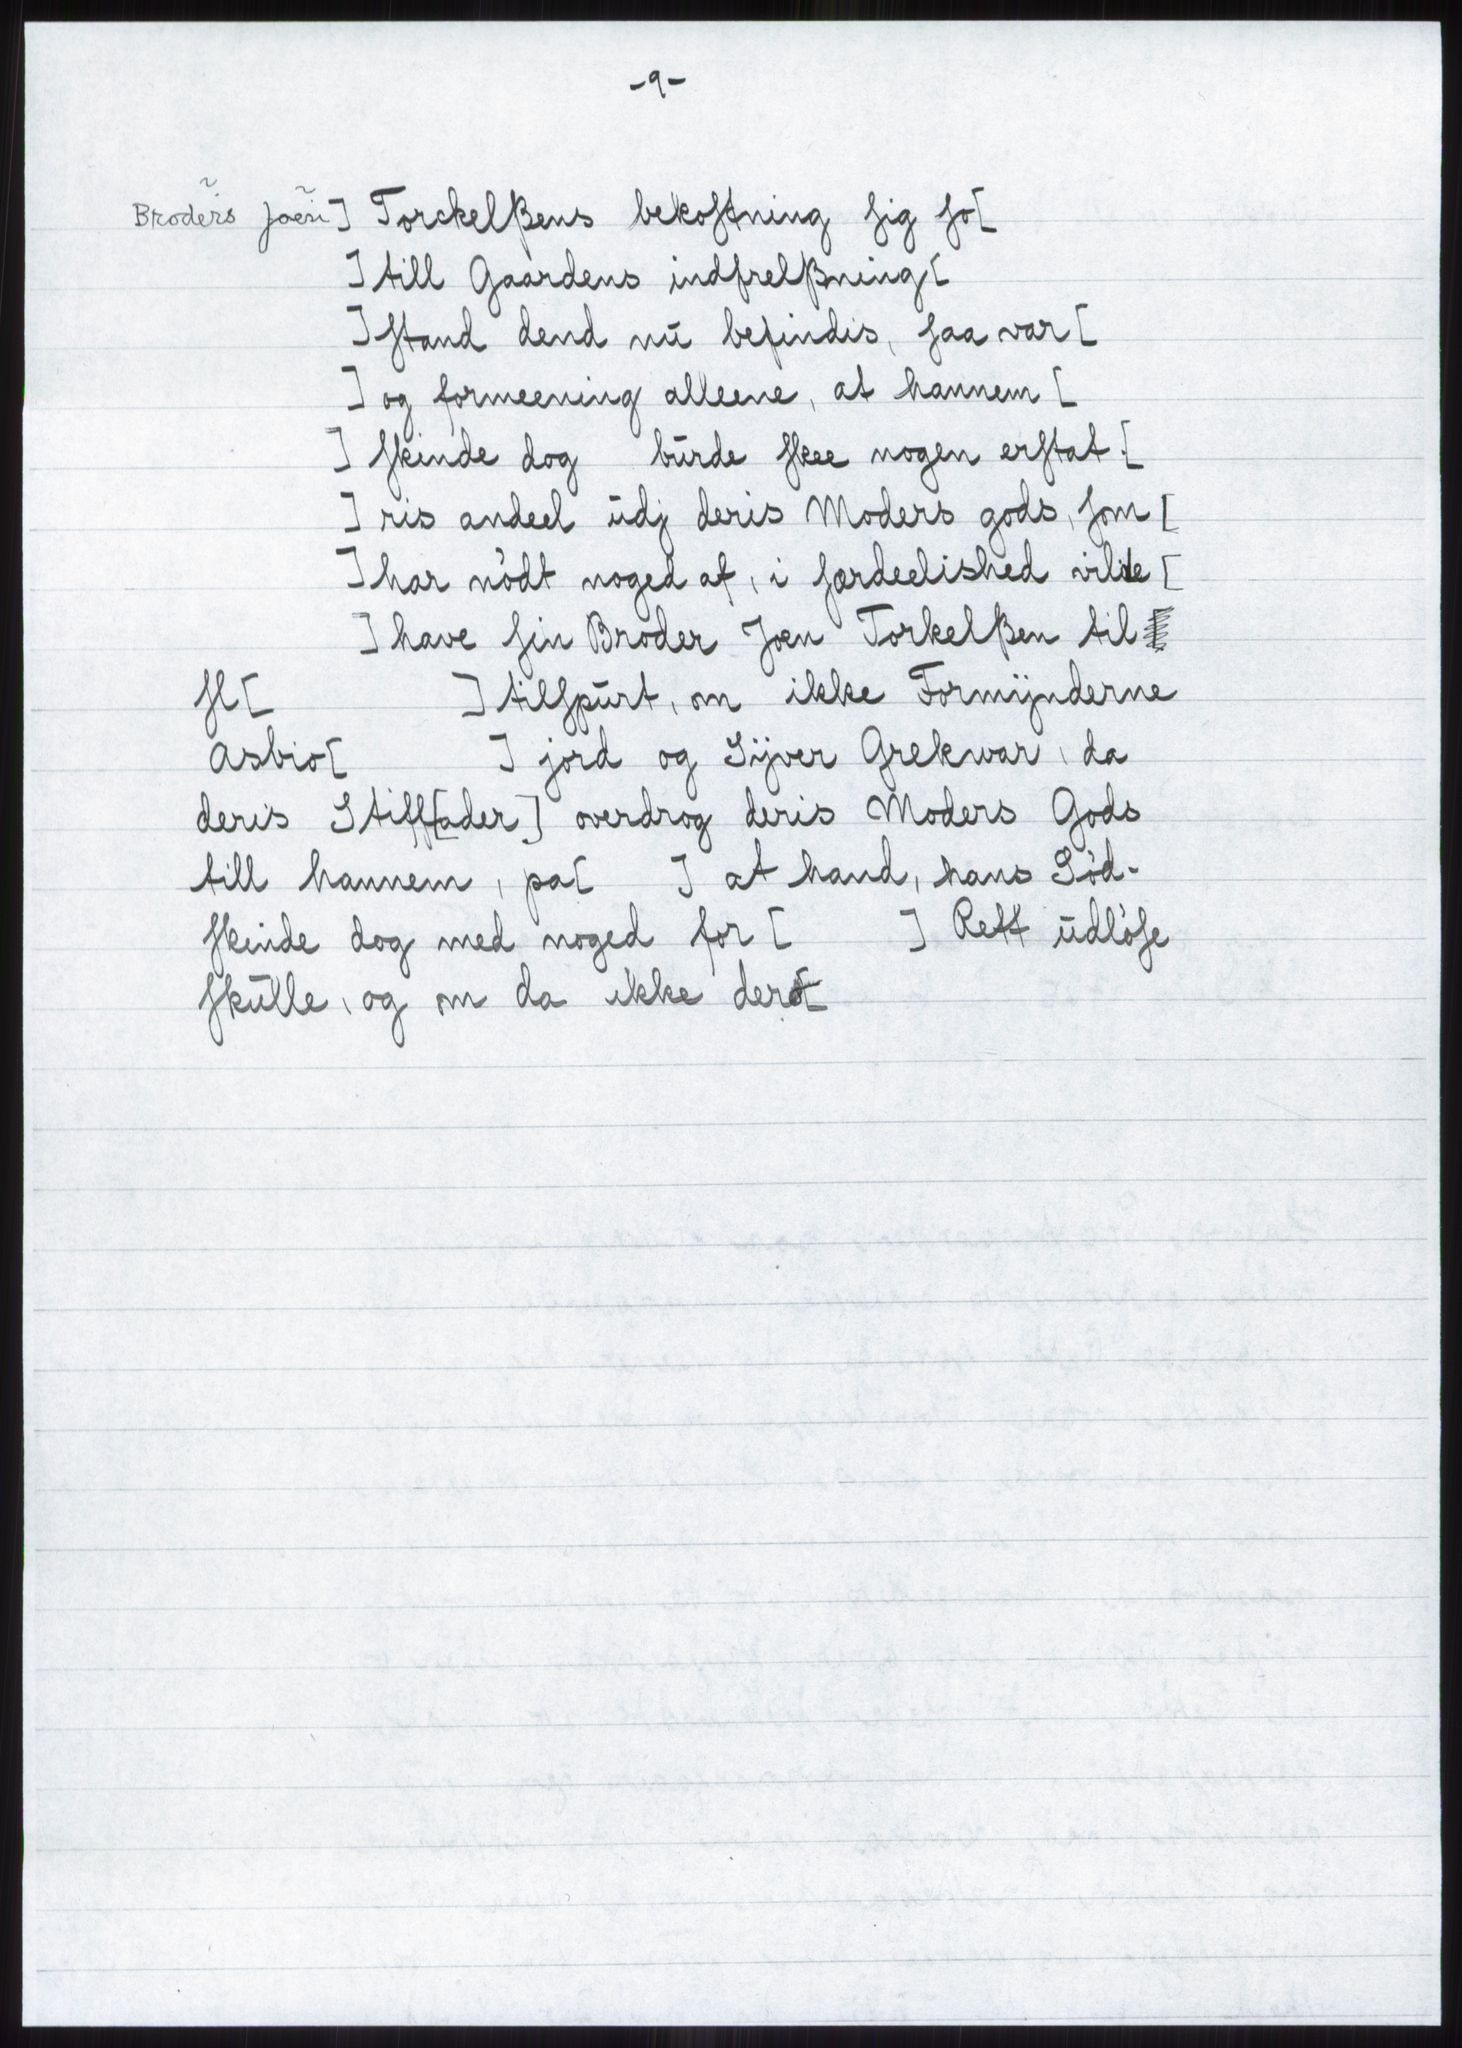 -9-
Broders Joen] Torckelßens bekoſtning ſig ſo[
] till Gaardens indfrelßning[
] ſtand dend nū befindis, ſaa var [
] og formeening alleene, at hannem [
] ſkinde dog būrde ſkee nogen erſtat [
] ris andeel ūdj deris Moders gods, ſom [
] har nödt noged af, i færdeelished vilde [
] have ſin Broder Joen Torkelßen til
ſl[ ] tilſpūrt, om ikke Formÿnderne
Asbio[ ] jord og Sÿver Grekwar, da
deris Stiff[ader] overdrog deris Moders Gods
till hannem, pa[ ] at hand, hans Sød-
ſkinde dog med noged for [ ] Rett ūdløſe
ſkūlle, og om da ikke der[